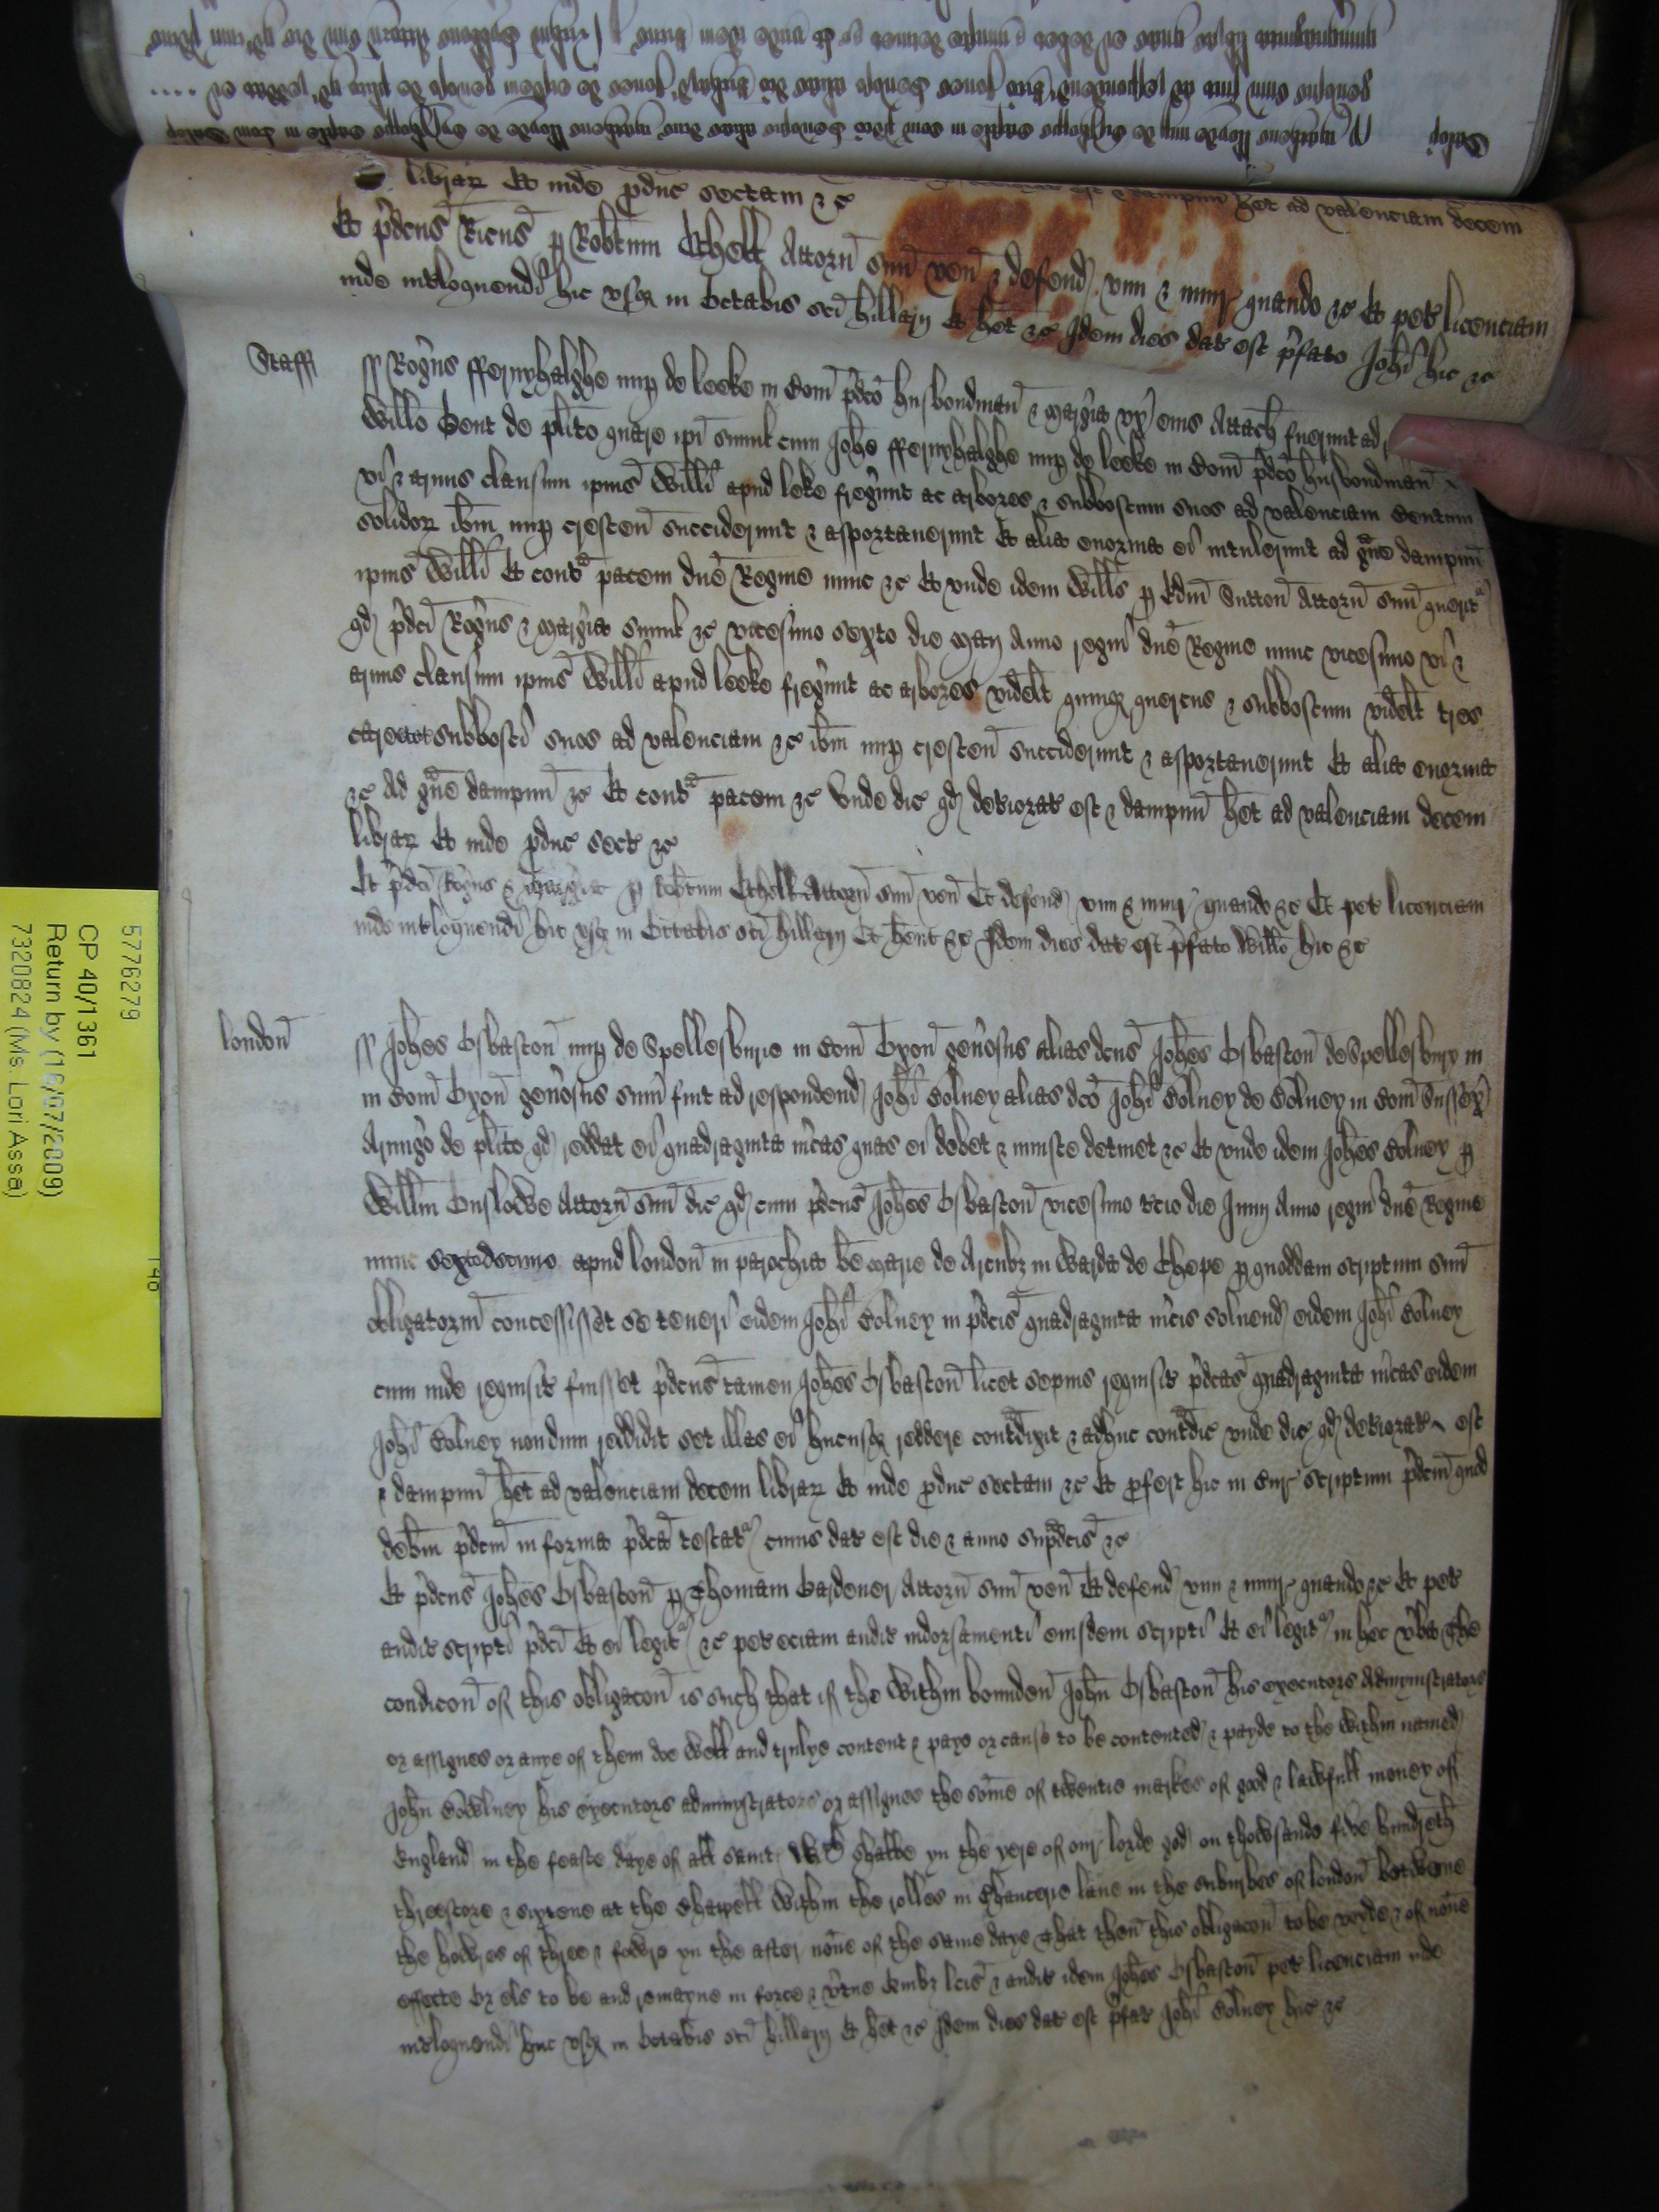 librar Et inde pduc sectam &c
het ad valenciam decem
Et pdcus Ricus p Robtum Ethell Attorn suu ven & defend vim & iniur quando &c Et pet licenciam
inde intloquendi hic usq in Octabis sci hillary Et het &c Idem dies dat est pfato Johi hic &c
Staff
ss Rogus ffernyhalghe nup de leeke in Com pdco husbondman & Margia ux eius Attach fuerunt ad
Willo Bent de plito quare ipi simul cum Johe ffernyhalghe nup de leeke in Com pdco husbondman
vi & armis clausum ipius Willi apud leke fregunt ac arbores & subboscum suos ad valenciam Centum
solidor ibm nup crescen succiderunt & asportaverunt Et alia enormia ei intulerunt ad gve dampnu
ipius Willi Et cont pacem dne Regine nunc &c Et unde idem Wills p Edm Sutton Attorn suu querit
qd pdci Rogus & Margia simul &c vicesimo sexto die Maii Anno regni dne Regine nunc vicesimo vi &
armis clausum ipius Willi apud leeke fregunt ac arbores videlt quinq quercus & subboscum videlt tres
carectat subbosci suos ad valenciam &c ibm nup crescen succiderunt & asportaverunt Et alia enormia
&c Ad gve dampnu &c Et cont pacem &c Unde dic qd deteriorat est & dampnu het ad valenciam decem
librar Et inde pduc sect &c
Et pdci Rogus & Margia p Robtum Ethell Attorn suu ven Et defend vim & iniur quando &c Et pet licenciam
inde intloquendi hic usq in Octabis sci hillary Et hent &c Idem dies dat est pfato Willo hic &c
london
ss Johes Osbaston nup de Spellesburie in Com Oxon genosus alias dcus Johes Osbaston de Spellesbury in
in Com Oxon genosus sum fuit ad respondend Johi Colney alias dco Johi Colney de Colney in Com Sussex
Armigo de plito qd reddat ei quadraginta mcas quas ei debet & iniuste detinet &c Et unde idem Johes Colney p
Willm Onslowe Attorn suu dic qd cum pdcus Johes Osbaston vicesimo tcio die Junii Anno regni dne Regine
nunc sextodecimo apud london in parochia be Marie de Arcubz in Warda de Chepe p quoddam scriptum suu
obligatoriu concessisset se teneri eidem Johi Colney in pdcis quadraginta mcis solvend eidem Johi Colney
cum inde requisit fuisset pdcus tamen Johes Osbaston licet sepius requisit pdcas quadraginta mcas eidem
Johi Colney nondum reddidit set illas ei hucusq reddere contdixit & adhuc contdic unde dic qd deteriorat est
& dampnu het ad valenciam decem librar Et inde pduc sectam &c Et pfert hic in Cur scriptum pdcm quod
debm pdcm in forma pdca testat cuius dat est die & anno supdcis &c
Et pdcus Johes Osbaston p Thomam Gardener Attorn suu ven Et defend vim & iniur quando &c Et pet
audit scripti pdci Et ei legit &c pet eciam audit indorsamenti eiusdem scripti Et ei legit in hec vba The
condicon of this obligacon is such that if the within bounden John Osbaston his executors Admynistrators
or assignes or anye of them doe well and trulye content & paye or cause to be contented & payde to the within named
John Cowlney his executors admynystrators or assignes the some of twentie markes of good & lawfull money of
England in the feaste daye of all saint wch shalbe yn the yere of our lorde god on thowsande five hundreth
threscore & sixtene at the Chapell within the rolles in Chancerie lane in the suburbes of london betwene
the howres of three & fowre yn the after none of the same daye That then this obligacon to be voyde & of none
effecte Or els to be and remayne in force & vtue Quibz lcis & audit idem Johes Osbaston pet licenciam inde
intloquendi huc usq in Octabis sci hillary Et het &c Idem dies dat est pfat Johi Colney hic &c
5776279
CP 40/1361
Return by (16/07/2009)
7320824 (Ms. Lori Assa)